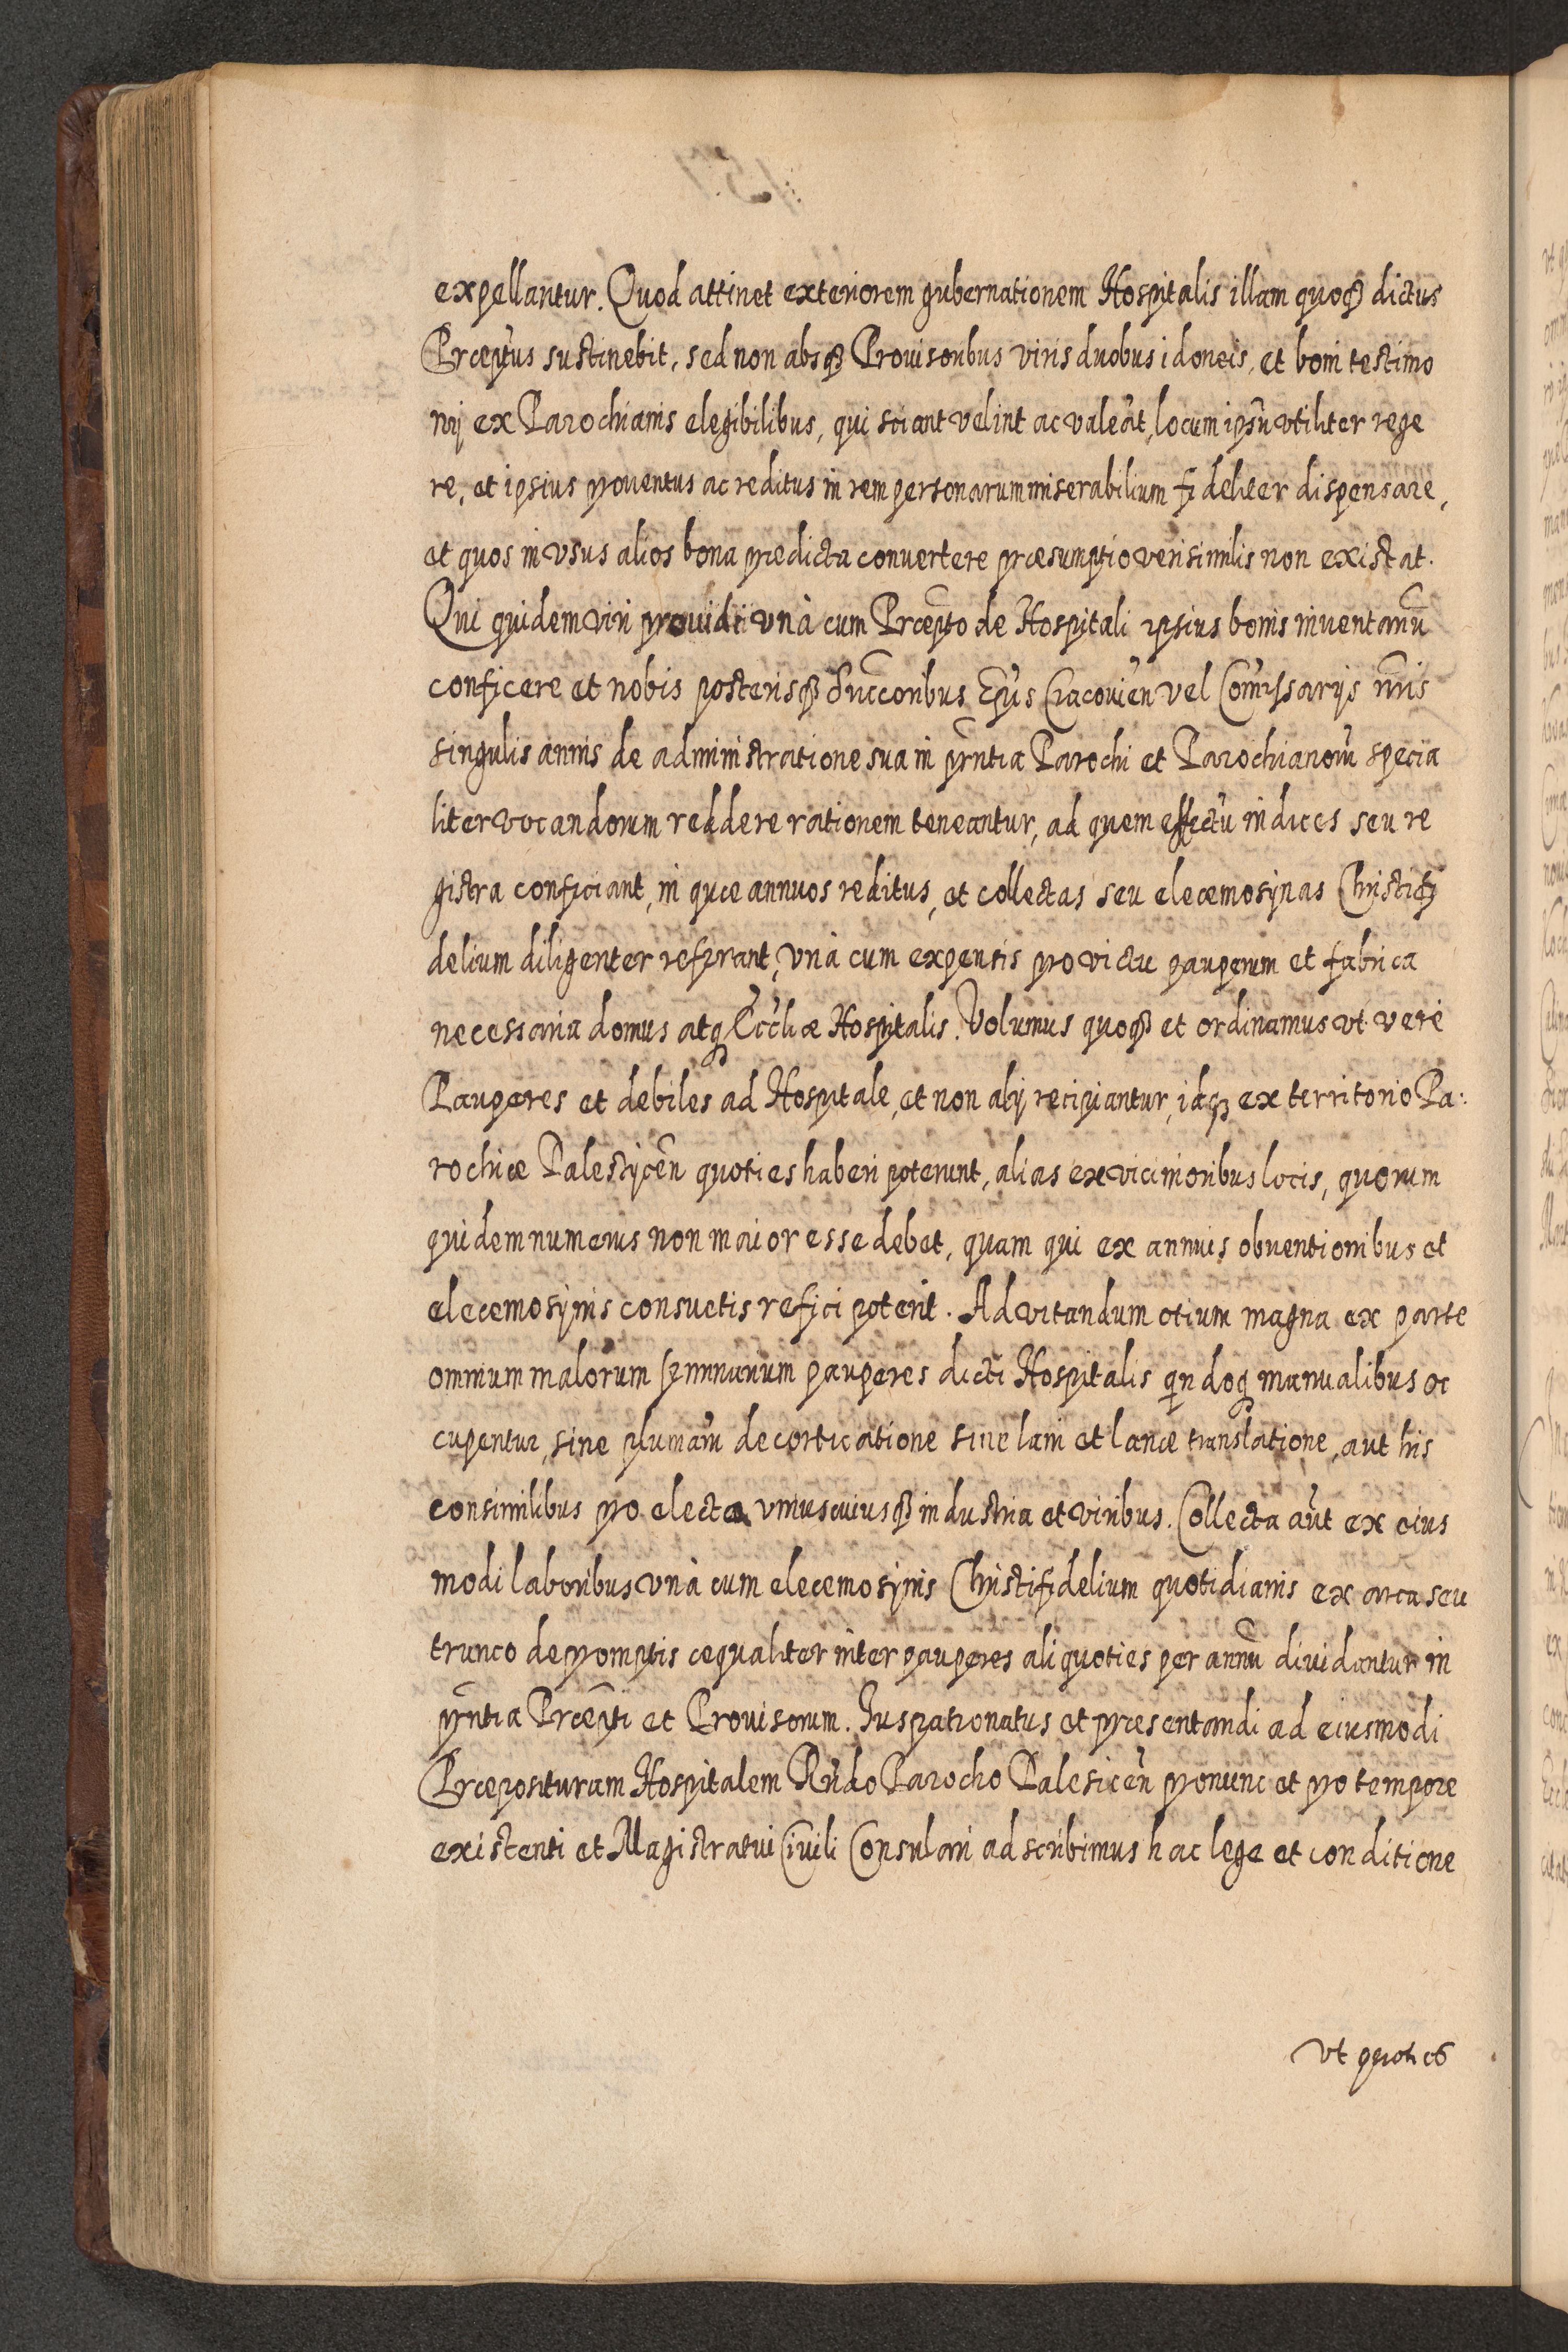 expellantur. Quod attinet exteriorem gubernationem Hospitalis illam quoqꝫ dictus
Præptus sustinebit, sed non absqꝫ Prouisoribus viris duobus idoneis, et boni testimo
nij ex Parochianis elegibilibus, qui sciant velint ac valeãt, locum ipsũ vtiliter rege
re, et ipsius prouentus ac reditus in rem personarum miserabilium fideliter dispensare,
et quos in vsus alios bona prædicta conuertere præsumptio verisimilis non existat.
Qui quidem viri prouidi vnà cum Præpto de Hospitali ipsius bonis inuentariũ
conficere et nobis posterisqꝫ Succoribus Epũs Cracouień vel Comissarijs nr̃is
singulis annis de administratione sua in prñtia Parochi et Parochianorũ specia
liter vocandorum reddere rationem teneantur, ad quem effectũ indices seu re
gistra conficiant, in quæ annuos reditus, et collectas seu eleemosijnas Christifi
delium diligenter referant, vnà cum expensis pro victu pauperum et fabrica
necessaria domus atqꝫ Ecclĩæ Hospitalis. Volumus quoqꝫ et ordinamus vt verè
Pauperes et debiles ad Hospitale, et non alij recipiantur, idqꝫ ex territorio Pa:
rochiæ Palesticeñ quoties haberi poterunt, alias ex vicinioribus locis, quorum
quidem numerus non maior esse debet, quam qui ex annuis obuentionibus et
eleemosijnis consuetis refici poterit. Ad vitandum otium magna ex parte
omnium malorum seminarium pauperes dicti Hospitalis qñdoqꝫ manualibus oc
cupentur, siue plumarũ decorticatione siue lani et lanæ translatione, aut his
consimilibus pro electa vniuscuiusqꝫ industria et viribus. Collecta aũt ex eius
modi laboribus vnà cum eleemosijnis Christifidelium quotidianis ex arca seu
trunco depromptis æqualiter inter pauperes aliquoties per annũ diuidantur in
prñtia Præpti et Prouisorum. Juspatronatus et præsentandi ad eiusmodi
Præposituram Hospitalem Rñdo Parocho Palesiceñ pro nunc et pro tempore
existenti et Magistratui Ciuili Consulari adscribimus hac lege et conditione
vt quoties